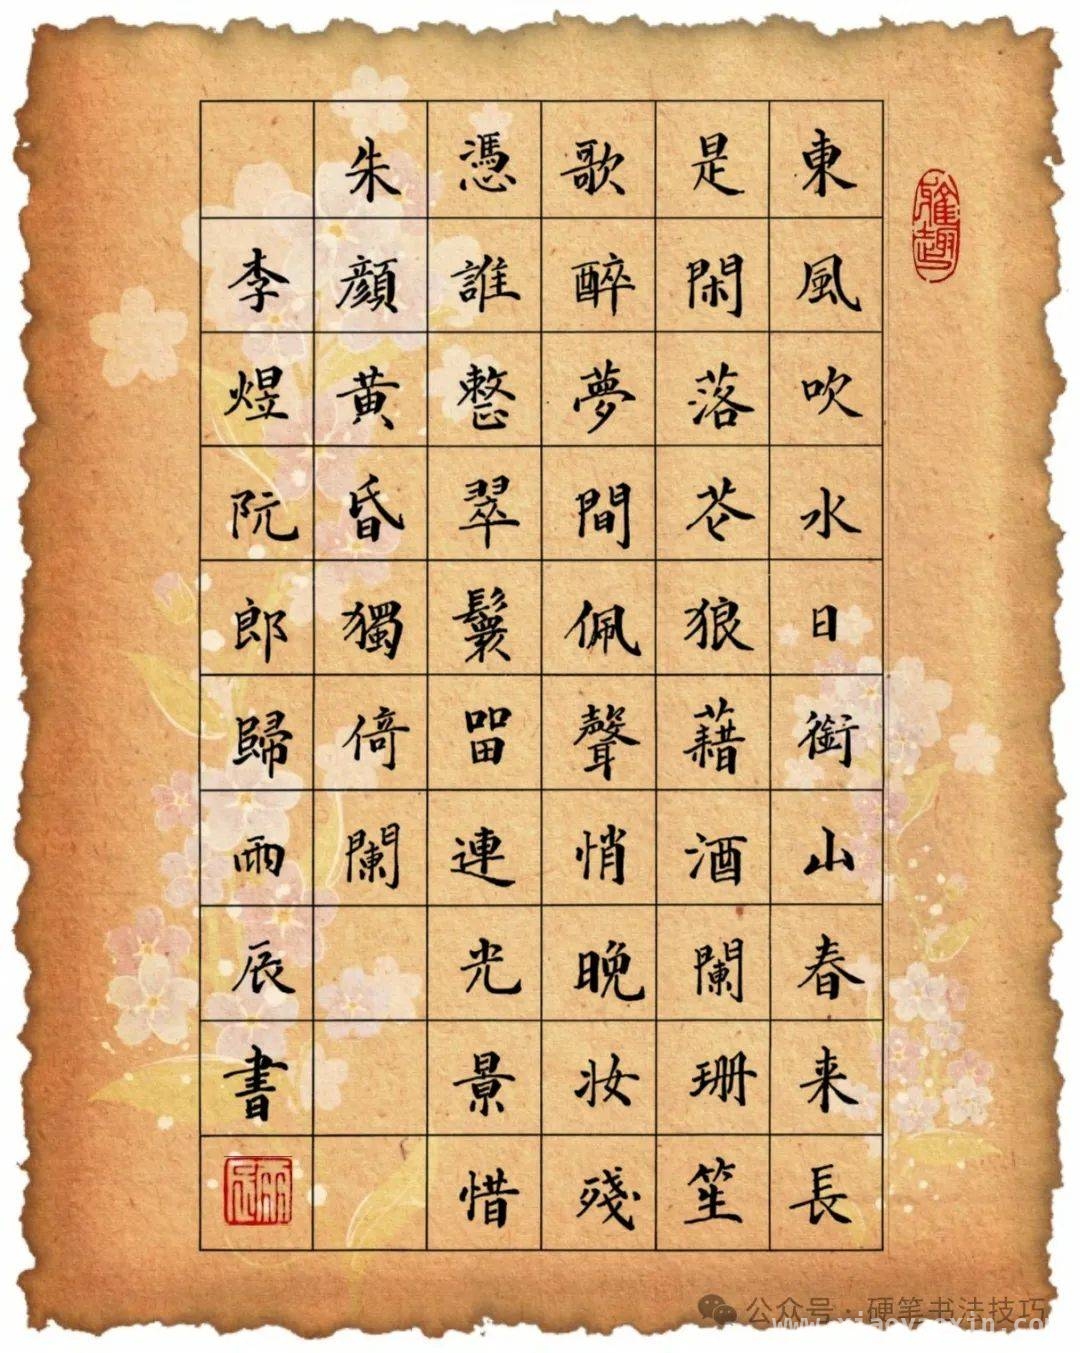 雅趣
東風吹水日銜山春来長
是閑落芲狼藉酒闌珊笙
歌醉夢間佩聲悄晚妆殘
憑誰整翠鬟㽞連光景惜
朱顔黄昏獨倚闌
李煜阮郎歸雨辰書
公众号 · 硬笔书法技巧